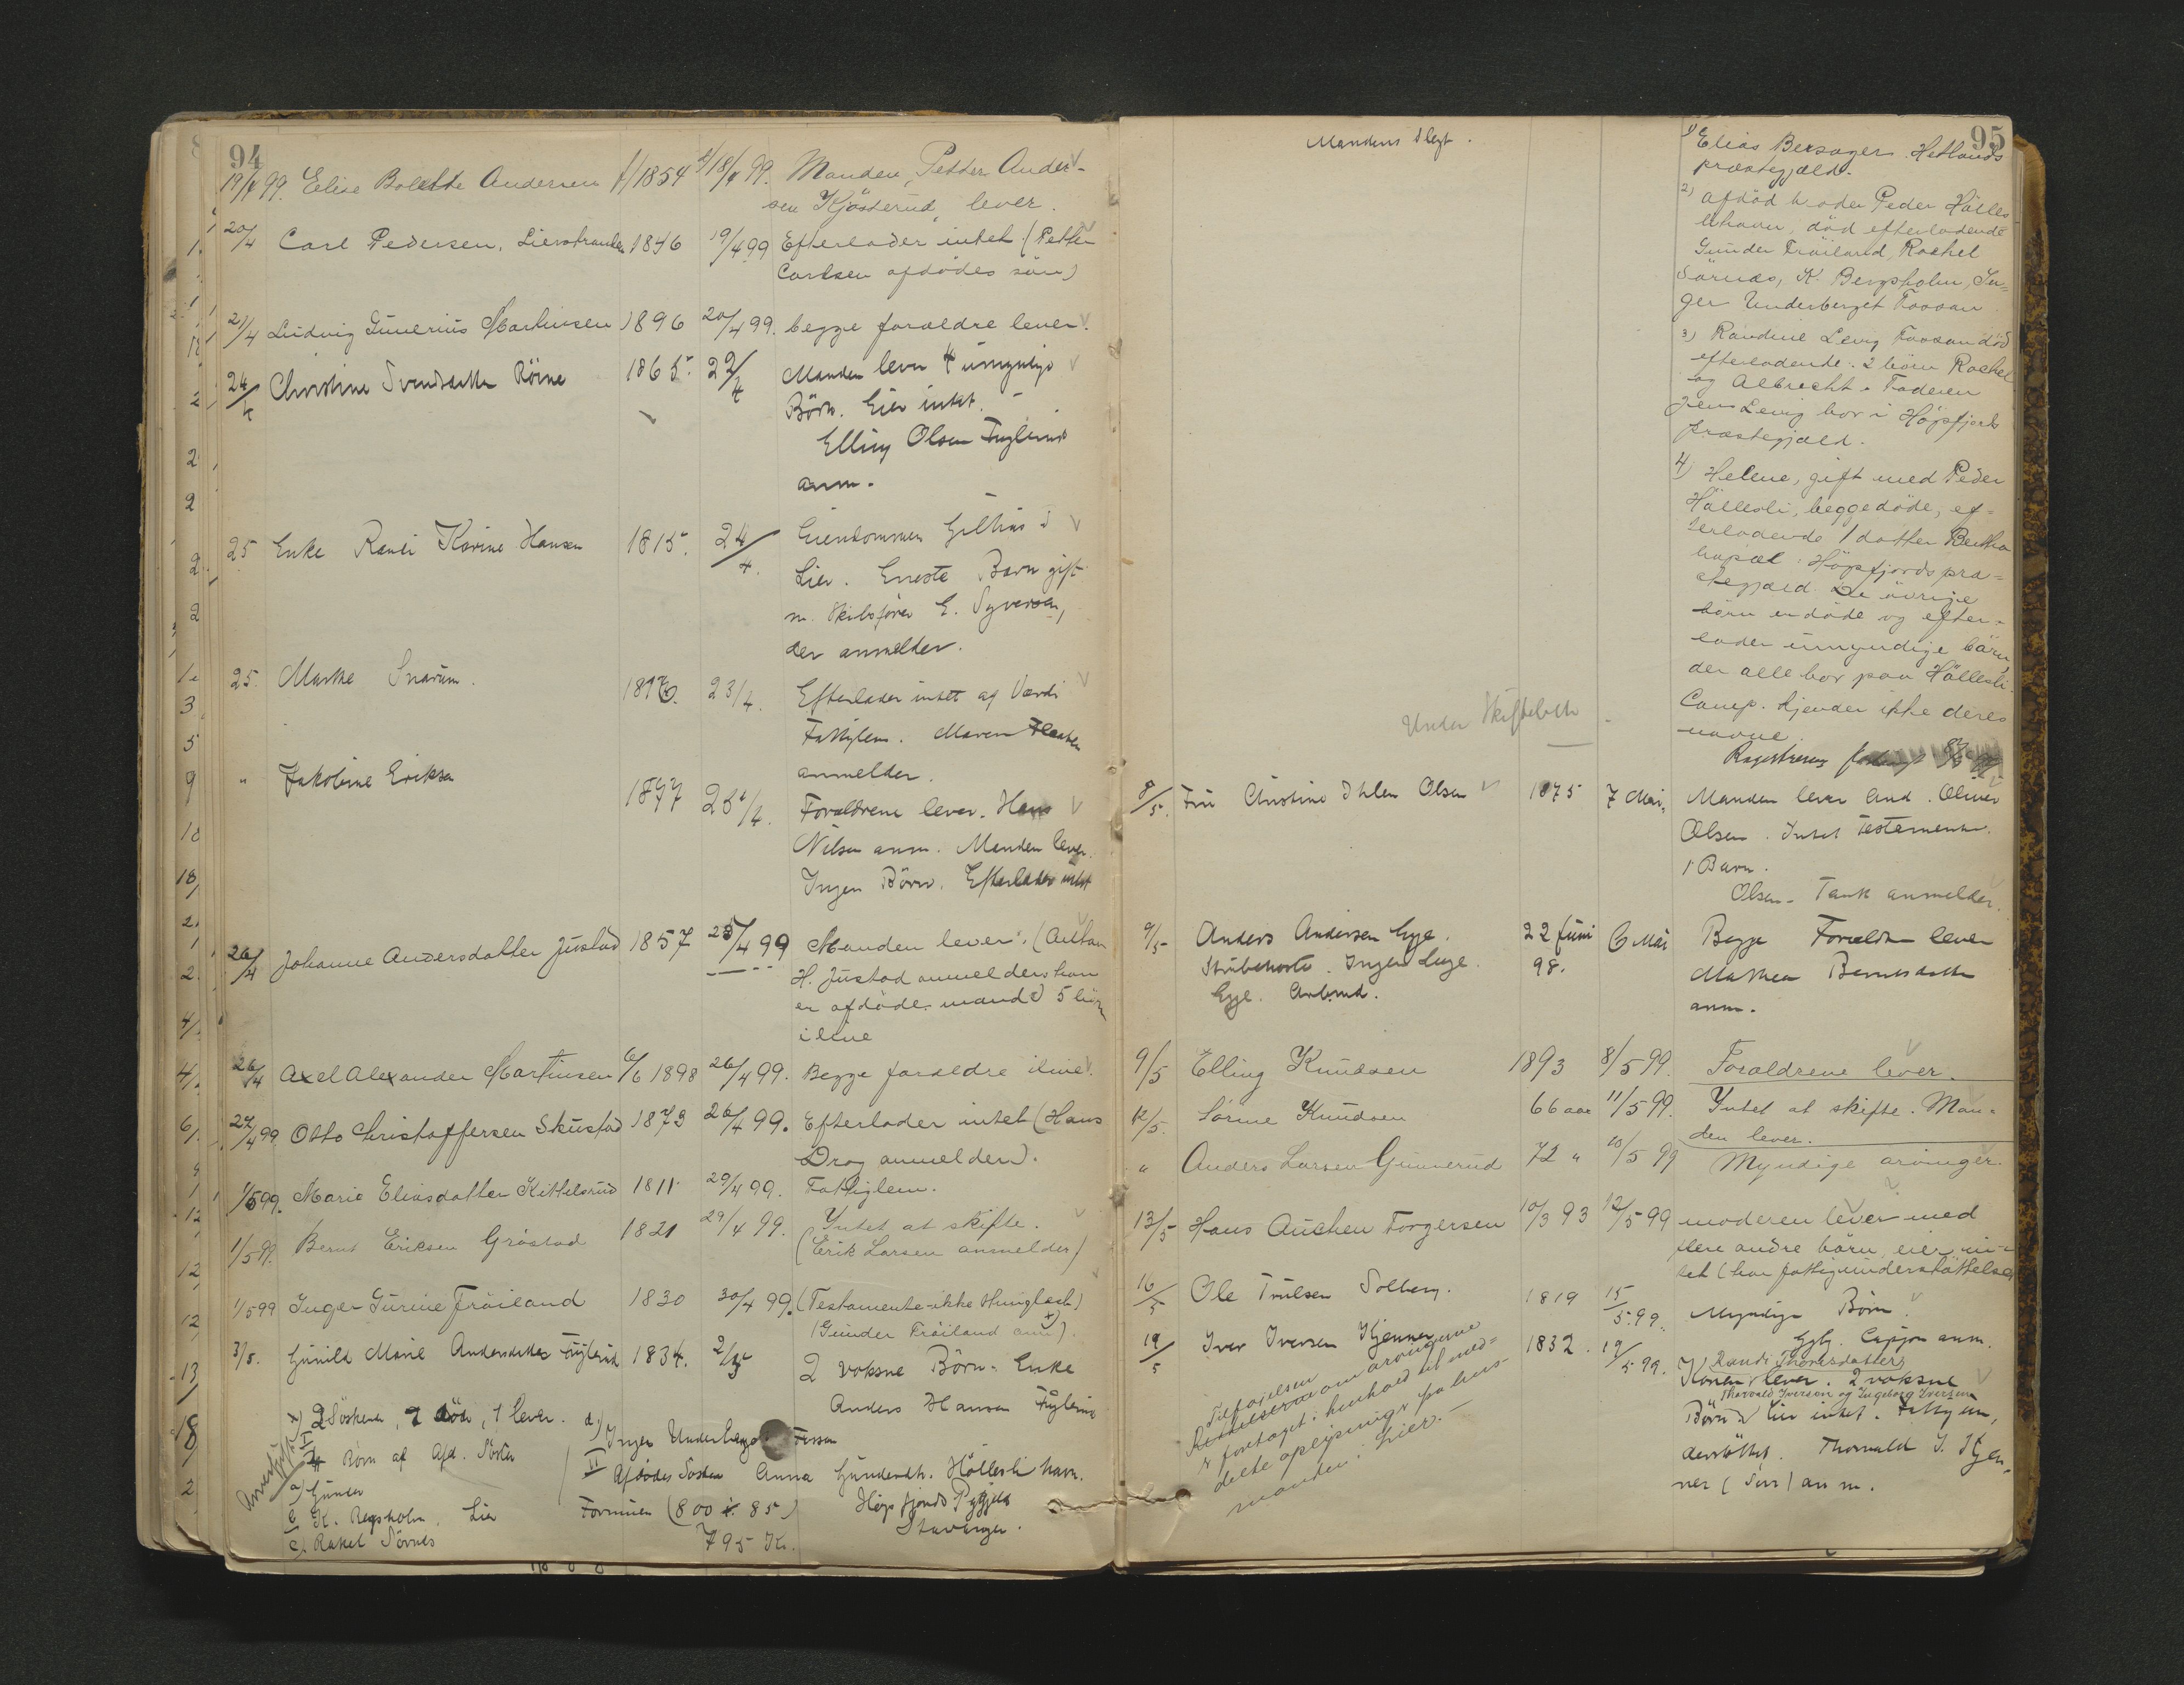 94
19/4 99. Elise Bolette Andersen f/1854 d/18/4 99. Manden, Petter Ander-
sen Kjösterud, lever.
20/4 Carl Pedersen, Lierstranden 1846 19/4 99 Efterlader intet (Petter
Carlsen afdödes sön)
21/4 Ludvig Gunerius Martinsen 1896 20/4 99. begge foraeldre lever.
24/4 Christine Svendsdatter Röine 1865. 22/4 Manden lever 4 umyndige
Börn. Eier intet.
Elling Olsen Fuglerud
anm.
25 Enke Randi Karine Hansen 1815. 24/4. Eiendommen Gilhus i
Lier. Eneste Barn gift
m. Skibsförer E. Syversen,
der anmelder.
25. Marthe Snarum. 23/4. Efterlader intet af Værdi
Fattiglem. Maren
anmelder.
" Jakobine Eriksen 1877 25/4. Forældrene lever. Hans
Nilsen anm. Manden lever.
Ingen Börn. Efterlader intet
26/4 Johanne Andersdatter Justad 1857 25/4 99 Manden lever. (Anton
H. Justad anmelder han
er afdöde mand) 5 börn
ilive
26/4 Axel Alexander Martinsen 6/6 1898 26/4 99. Begge foraeldre ilive.
27/4 99 Otto Christoffersen Skustad 1873 26/4 99. Efterlader intet (Hans
Drog anmelder).
1/5 99. Marie Eliasdatter Kittelsrud 1811 29/4 99. Fattiglem.
1/5 99. Bernt Eriksen Gröstad 1821 29/4 99. Intet at skifte.
(Erik Larsen anmelder)
1/5 99 Inger Gurine Fröiland 1830 30/4 99. (Testamente ikke thinglæst)
(Gunder Fröiland anm).
3/5. Gunild Marie Andersdatter Fuglerud 1834. 2/5 2 voksne Börn. Enke
Anders Hansen Fuglerud
x) 2 Söskende, 1 död, 1 lever. d.) Inger Underberget Fossan
Börn af Afd. Söster
II Afdödes Söster Anna Gundersdtr. Höllesli havn.
a) Gunder
b) K. Bergsholm. Lier Formuen (800 85) Högsfjords Pgjeld
c) Rakel Sörnes 795 Kr. Stavanger.
Mandens Slegt.
95
1) Elias Bersager Hetlands
præstegjæld.
2) afdöd broder Peder Hölles-
lihavn, död efterladende
Gunder Fröiland, Rachel
Sörnæs, K. Bergsholm, In-
ger Underberget Fossan
3) Randine Levig Fossan död
efterladende: 2 börn Rachel
og Albrecht. Faderen
Jens Levig bor i Högsfjord
præstegjæld.
4) Helene, gift med Peder
Höllesli, begge döde, ef-
terladende 1 datter Bertha
bopæl: Högsfjords præ-
stegjæld. De övrige
börn er döde og efter-
lader umyndige börn,
der alle bor paa Höllesli
Camp. Kjender ikke deres
navne.
Under Skiftebeh.
Registrering
8/5. Fru Christine Ihlen Olsen 1875 7 Mai. Manden lever And. Oliver
Olsen. Intet Testamente.
1 Barn.
Olsen-Tank anmelder.
9/5 Anders Andersen Egge. 22 Juni 6 Mai Begge Forældre lever
Strubehoste. Ingen Læge. 98. Mathea Berntsdatter
Egge. anm.
9/5 Elling Knudsen 1893 8/5 99. Forældrene lever.
12/5. Sörine Knudsen 66 aar 11/5 99. Intet at skifte. Man-
den lever.
" Anders Larsen Gunnerud 72 " 10/5 99 Myndige arvinger.
13/5 Hans Auchen Torgersen 10/3 93 12/5 99 moderen lever med
flere andre börn, eier in-
tet (har fattigunderstöttelse)
16/5 Ole Trulsen Solberg. 1819 15/5.99. Myndige Börn.
anm.
19/5 Iver Iversen Kjenner 1832. 19/5 99. Randi Thorvsdatter
Konen lever. 2 voksne
Thorvald Iversen og Ingeborg Iversen
Börn. Eier intet. Fattigun-
derstöttet. Thorvald I. Kjen-
ner (Sön) anm.
Tilföielsen
Rettelserne om arvingerne
er foretaget i henhold til med-
delte oplysninger fra lens-
manden i Lier.